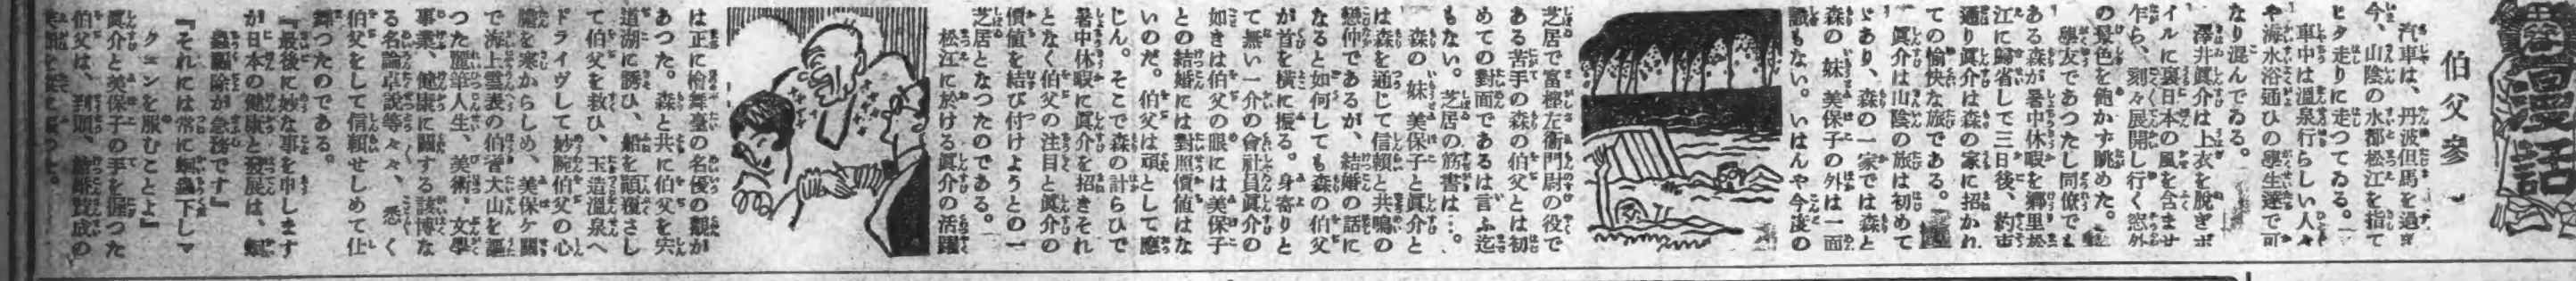 漫画話
伯父参
汽車は、丹波但馬を過ぎ
今、山陰の水都松江を指て
ヒタ走りに走つてゐる。
車中は溫泉行らしい人々
や海水浴通ひの學生達で可
なり混んでゐる。
澤井眞介は上衣を脱ぎボ
イルに裏日本の風を含ませ
乍ら、刻々展開し行く窓外
の景色を飽かず眺めた。
學友であつたし同僚でも
ある森が暑中休暇を郷里松
江に歸省して三日後、約束
通り眞介は森の家に招かれ
ての愉快な旅である。
眞介は山陰の旅は初めて
であり、森の一家では森と
森の妹美保子の外は一面
識もない。いはんや今度の
芝居で富樫左衞門尉の役で
ある苦手の森の伯父とは初
めての對面であるは言ふ迄
もない。芝居の筋書は…。
森の妹美保子と眞介と
は森を通じて信賴と共鳴の
戀仲であるが、結婚の話に
なると如何しても森の伯父
が首を横に振る。身寄りと
て無い一介の會社員眞介の
如きは伯父の眼には美保子
との結婚には對照價値はな
いのだ。伯父は頑として應
じん。そこで森の計らひで
暑中休暇に眞介を招きそれ
となく伯父の注目と眞介の
價値を結び付けようとの一
芝居となつたのである。
松江に於ける眞介の活躍
は正に檜舞臺の名優の觀が
あつた。森と共に伯父を宍
道湖に誘ひ、船を顚覆さし
て伯父を救ひ、玉造溫泉へ
ドライヴして妙腕伯父の心
膽を寒からしめ、美保ケ關
で海上雲表の伯耆大山を謳
つた麗筆人生、美術、文學
事業、健康に關する該博な
る名論卓說等々々、悉く
伯父をして信賴せしめて仕
舞つたのである。
『最後に妙な事を申します
が日本の健康と發展は、蛔
蟲驅除が急務です』
『それには常に蛔蟲下しマ
クニンを服むことよ』
眞介と美保子の手を握つた
伯父は、到頭、結婚賛成の